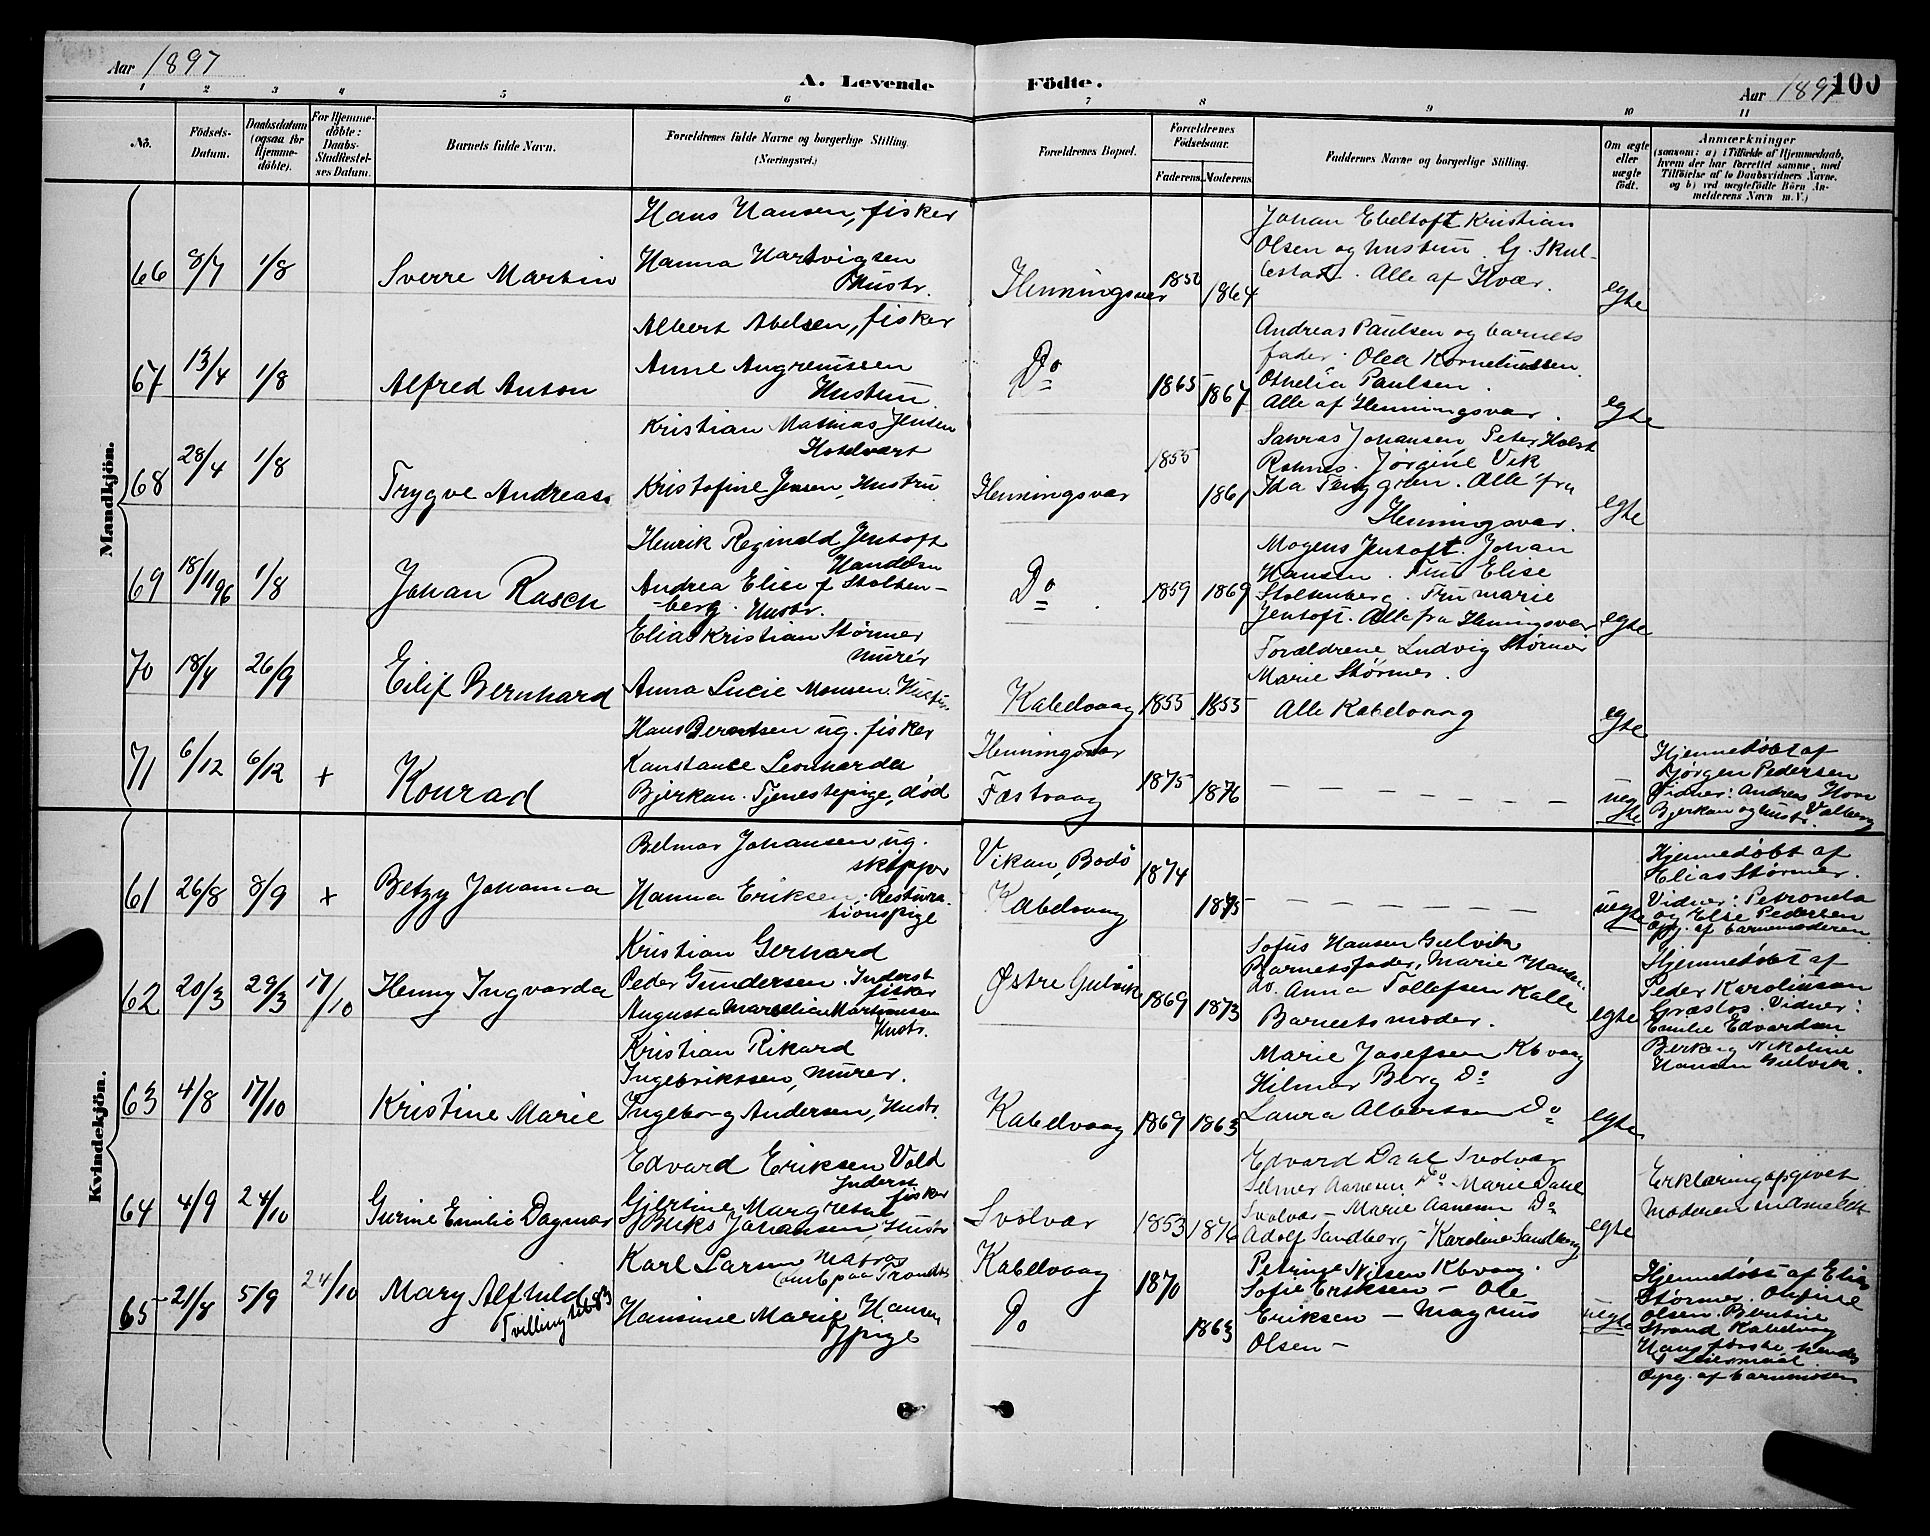 Aar 1897
A. Levende Födte.
Aar 1897
100
1 2 3 4 5 6 7 8 9 10 11
No.
Födsels-
Datum.
Daabsdatum
(ogsaa for
Hjemme-
döbte).
For Hjemme-
döbte:
Daabs-
Stadfæstel-
ses Datum.
Barnets fulde Navn.
Forældrenes fulde Navne og borgerlige Stilling.
(Næringsvei.)
Forældrenes Bopæl.
Forældrenes
Födselsaar.
Faderens. Moderens.
Faddernes Navne og borgerlige Stilling.
Om ægte
eller
uægte
födt.
Anmærkninger
(saasom: a) i Tilfælde af Hjemmedaab,
hvem der har forrettet samme, med
Tilföielse af to Daabsvidners Navne,
og b) ved uægtefödte Börn An-
melderens Navn m. V.)
Mandkjön.
66 8/7 1/8
Sverre Martin
Hans Hansen, fisker
Hanna Hartvigsen
Hustr.
Henningsvær
1850 1864
Johan Ebeltoft Kristian
Olsen og hustru. G. Skul-
bestad. Alle af Hvær.
egte
67 13/4 1/8
Alfred Anton
Albert Abelsen, fisker
Anne Angrenussen
Hustru
Do
1865 1867
Andreas Paulsen og barnets
fader. Olea Korneliussen.
Othelia Paulsen.
Alle af Henningsvær.
egte
68 28/4 1/8
Trygve Andreas
Kristian Mathias Jensen
Hotelvært
Kristofine Jensen, Hustru
Henningsvær
1855 1861
Johansen Peter Holst
Jørgine Vik
Ida Tenggren. Alle fra
Henningsvær.
egte
69 18/11 96 1/8
Johan Rasch
Henrik Reginald Jentoft
Handelsm
Andrea Elise f. Stolten-
berg. Hustr.
Do
1859 1869
Mogens Jentoft. Johan
Hansen. Fru Elise
Stoltenberg. Fru Marie
Jentoft. Alle fra Henningsvær
egte
70 18/4 26/9
Eilif Bernhard
Elias Kristian Størmer
murer
Anna Lucie Monsen. Hustru
Kabelvaag
1855 1855
Forældrene Ludvig Størmer
Marie Størmer.
Alle Kabelvaag
egte
71 6/12 6/12 +
Konrad
Hans Berntsen ug. fisker
Konstance Leonharda
Bjerkan. Tjenestepige, død
Henningsvær
Festvaag
1875 1876
– – – – – – –
uegte
Hjemmedøbt af
Jørgen Pedersen
Vidner: Andreas
Bjerkan og hustr. Valberg
Kvindekjön.
61 26/8 8/9 +
Betzy Johanna
Belmar Johansen ug.
skipper
Hanna Eriksen. Restura-
tionspige
Vikan, Bodö
Kabelvaag
1874 1875
– – – – – – –
uegte
Hjemmedøbt af
Elias Størmer.
Vidner: Petronela
og Else Pedersen
Opg. af barnemoderen
62 20/3 29/3 17/10
Henny Ingvarda
Kristian Gerhard
Peder Gundersen. Inderst
fisker
Augusta Marselie Martinussen
Hustr.
Østre Gulvik
1869 1873
Sofus Hansen Gulvik
Barnets fader, Marie Hansen
do. Anna Tollefsen Kalle
Barnets moder.
egte
Hjemmedøbt af
Peder Karolinson
Græslos. Vidner:
Emilie Edvardsen
Nikoline
Hansen Gulvik.
63 4/8 17/10
Kristine Marie
Kristian Rikard
Ingebriktsen, murer.
Ingeborg Andersen, Hustr.
Kabelvaag
1869 1863
Marie Josefsen Kbvaag
Hilmar Berg Do
Laura Albertsen Do
egte
64 4/9 24/10
Gurine Emilie Dagmar
Edvard Eriksen Vold
Inderst
fisker
Gjertine Margrethe
Buks Johansen, Hustr
Svolvær
1853 1876
Edvard Dahl Svolvær
Selmer Aanensen Do Marie Dahl
Svolvær – Marie Aanensen Do
Adolf Sandberg – Karoline Sandberg
egte
Erklæring afgivet
Moderen
65 21/4 5/9 24/10
Mary Alfhild
Tvilling
Karl Larsen matros
(omb. paa
Hansine Marie Hansen
Tjpige
Kabelvaag
Do
1870 1863
Petrine Nilsen Kbvaag.
Sofie Eriksen – Ole
Eriksen – Magnus
Olsen –
uegte
Hjemmedøbt af Elias
Størmer. Olufine
Olsen. Berntine
Strand Kabelvaag
Hans første hendes
Leiermaal.
Opg. af barnemoren